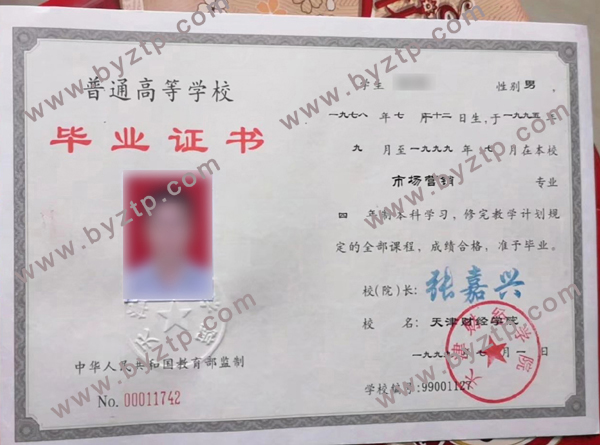 普通高等学校
毕业证书
中华人民共和国教育部监制
No. 00011742
学生 性别 男 ,
一九七八 年 七 月 十二 日生,于 一九九五 年
九 月至 一九九九 年 七 月在本校
市场营销 专业
四 年制本科学习,修完教学计划规
定的全部课程,成绩合格,准予毕业。
校(院)长: 张嘉兴
校 名: 天津财经学院
一九九九 年 七 月 一 日
学校编号: 99001127
天津财经学院
www.byztp.com